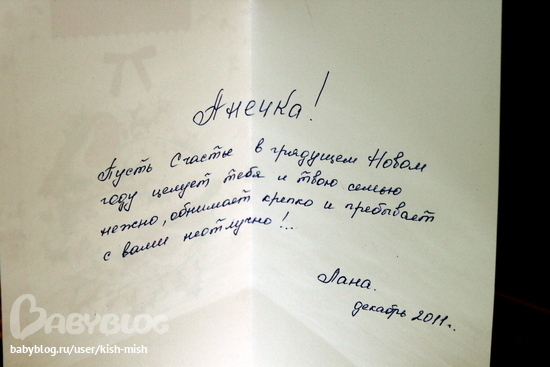 Анечка!
Пусть Счастье в грядущем Новом
году целует тебя и твою семью
нежно, обнимает крепко и пребывает
с вами неотлучно!..
Лана.
декабрь 2011г.
BABYBLOG
babyblog.ru/user/kish-mish